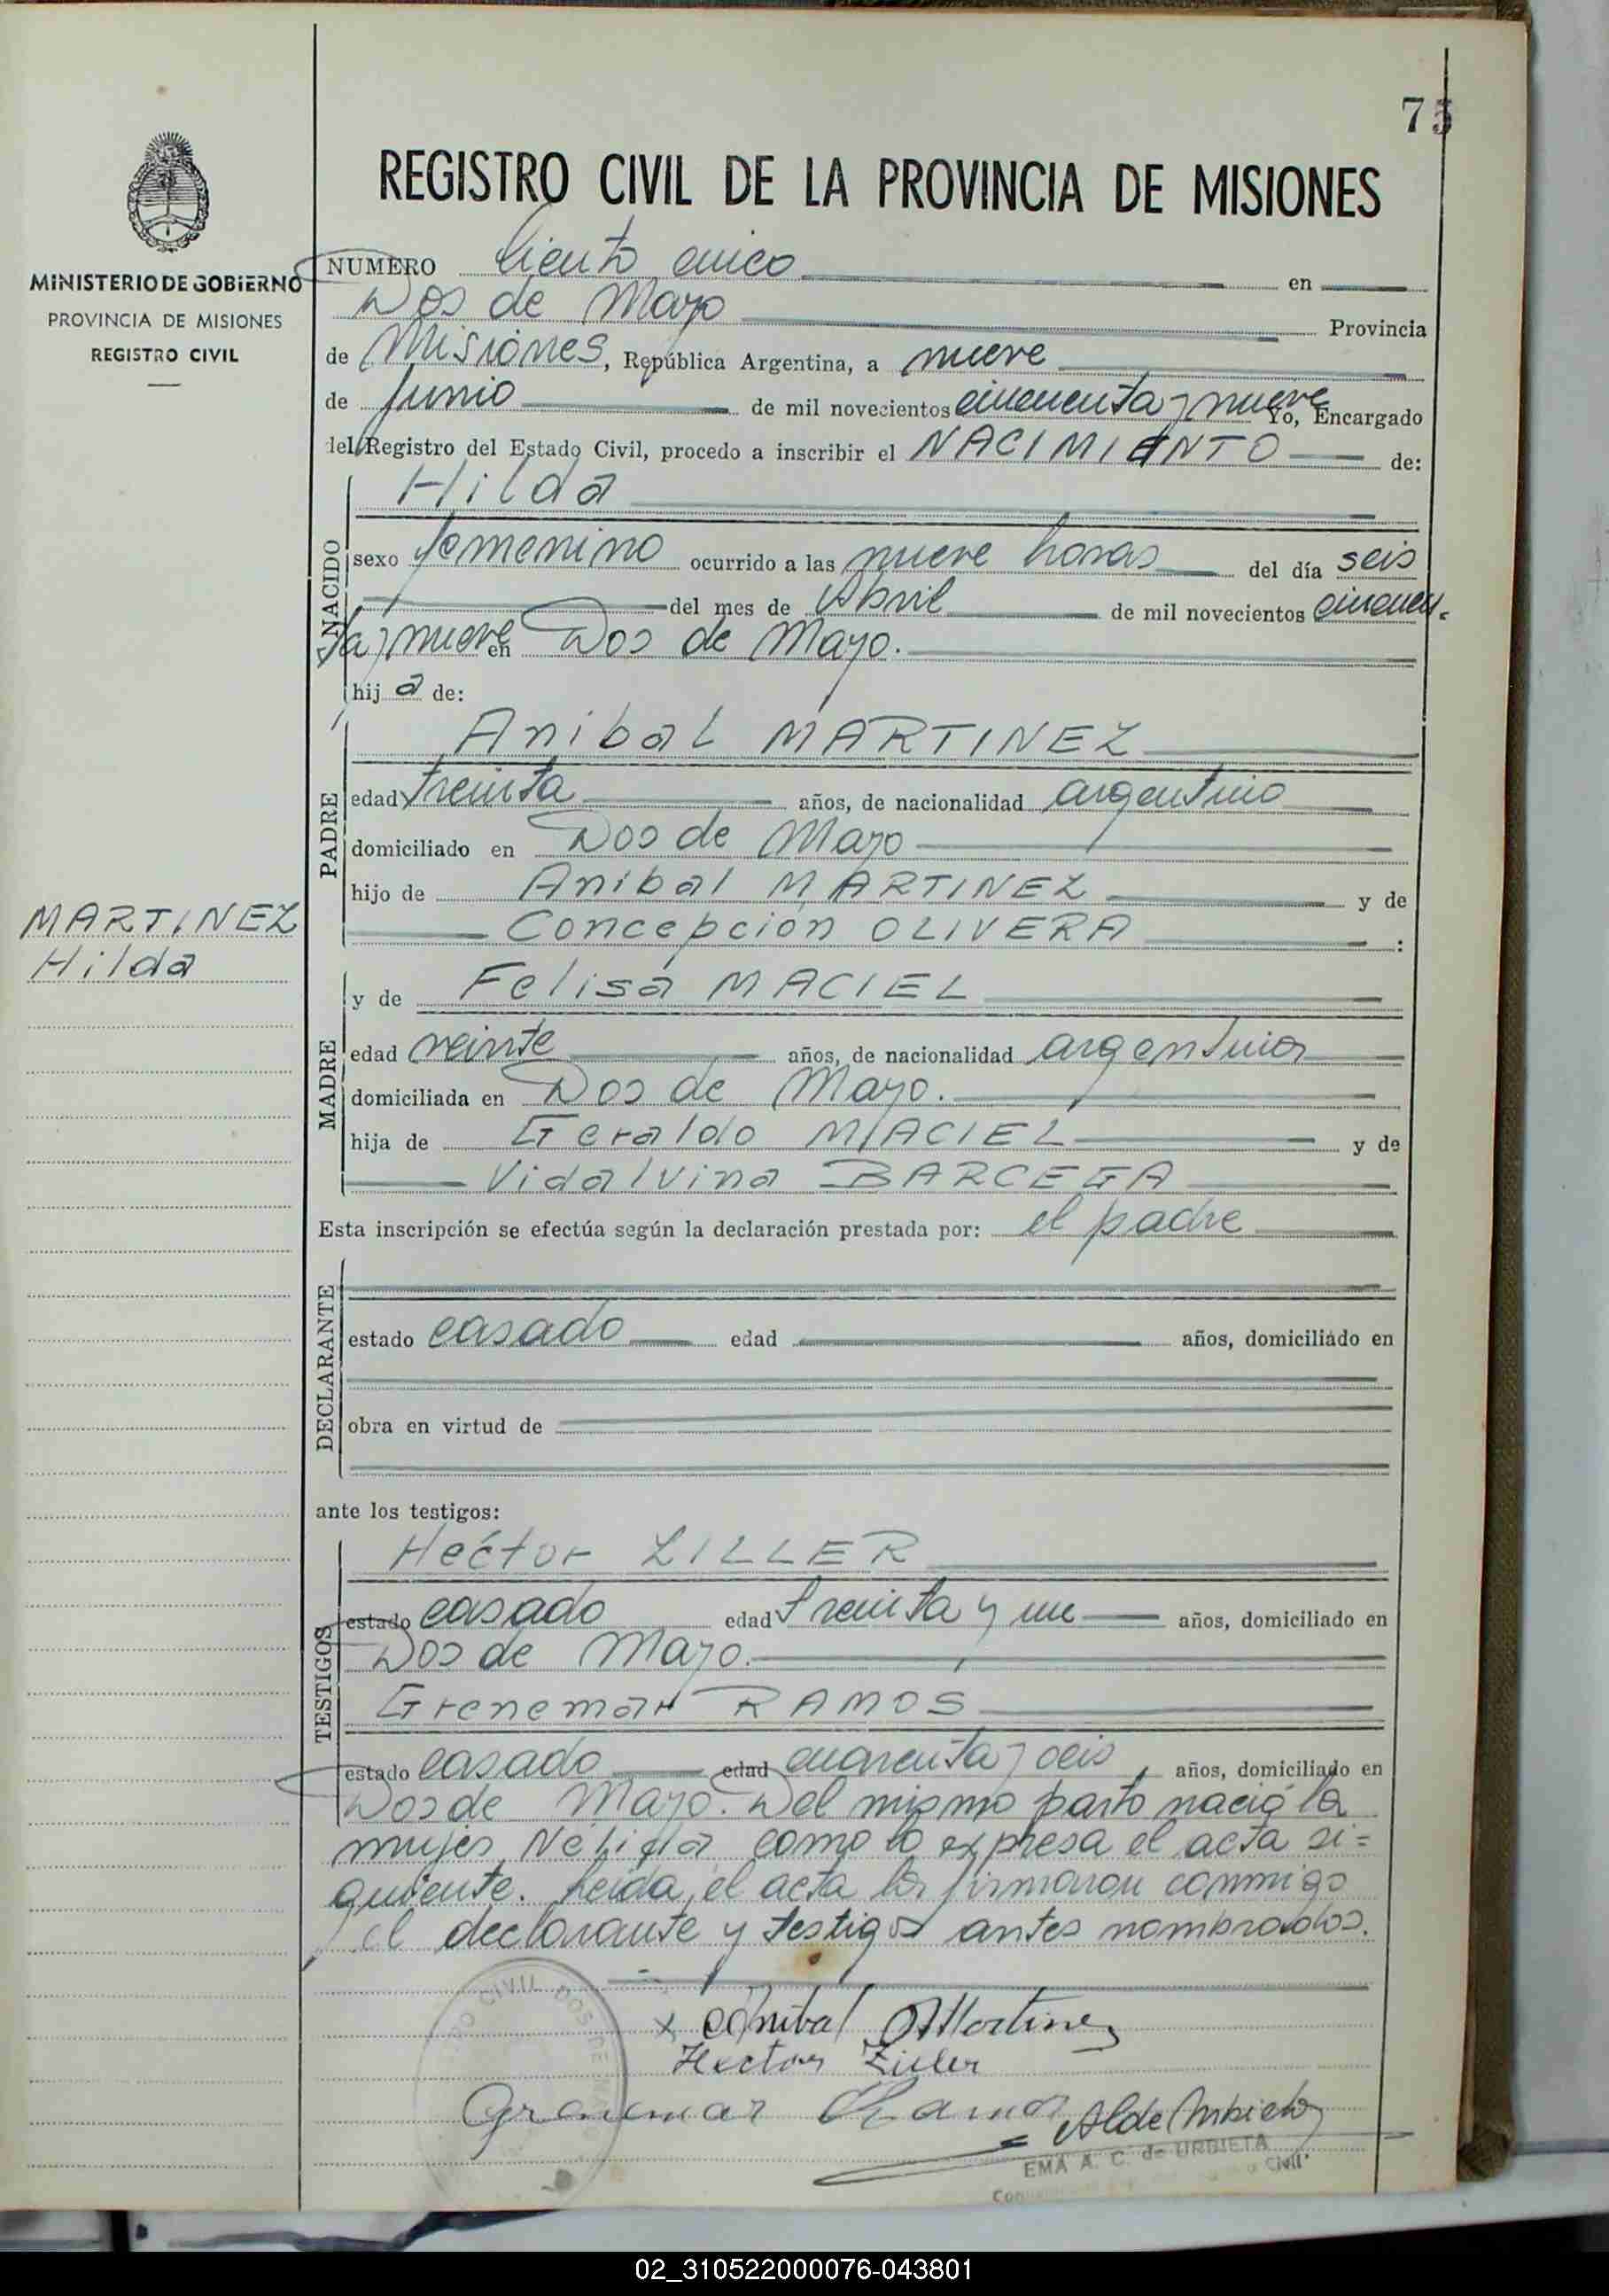 75
REGISTRO CIVIL DE LA PROVINCIA DE MISIONES
MINISTERIO DE GOBIERNO
PROVINCIA DE MISIONES
REGISTRO CIVIL
NUMERO Ciento cinco en
Dos de Mayo Provincia
de Misiones, República Argentina, a nueve
de Junio de mil novecientos cincuenta y nueve Yo, Encargado
del Registro del Estado Civil, procedo a inscribir el NACIMIENTO de:
Hilda
NACIDO
sexo femenino ocurrido a las nueve horas del día seis
del mes de Abril de mil novecientos cincuen-
ta y nueve en Dos de Mayo.
hij a de:
Anibal MARTINEZ
PADRE
edad treinta años, de nacionalidad argentino
domiciliado en Dos de Mayo
hijo de Anibal MARTINEZ y de
Concepción OLIVERA :
MARTINEZ
Hilda
y de Felisa MACIEL
MADRE
edad veinte años, de nacionalidad argentina
domiciliada en Dos de Mayo.
hija de Geraldo MACIEL y de
Vidalvina BARCEGA
Esta inscripción se efectúa según la declaración prestada por: el padre
DECLARANTE
estado casado edad años, domiciliado en
obra en virtud de
ante los testigos:
Héctor ZILLER
TESTIGOS
estado casado edad treinta y un años, domiciliado en
Dos de Mayo.
Grenemar RAMOS
estado casado edad cuarenta y seis años, domiciliado en
Dos de Mayo. Del mismo parto nació la
mujer Nélida como lo expresa el acta si=
guiente. Leída el acta la firmaron conmigo
el declarante y testigos antes nombrados.
CIVIL DOS DE MAYO
x Anibal Martinez
Hector Ziller
Grenemar Ramos
EMA A. C. de URBIETA
Civil
02_310522000076-043801